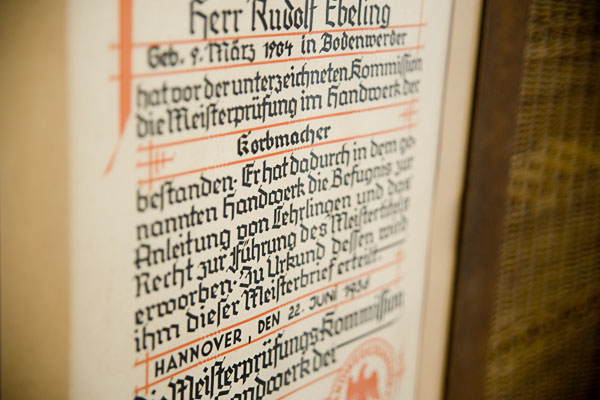 Herr Rudolf Ebeling
Geb. 9. März 1904 in Bodenwerder
hat vor der unterzeichneten Kommission
die Meisterprüfung im Handwerk der
Korbmacher
bestanden. Er hat dadurch in dem ge-
nannten Handwerk die Befugnis zur
Anleitung von Lehrlingen und das
Recht zur Führung des Meistertitels
erworben. Zu Urkund dessen wird
ihm dieser Meisterbrief erteilt.
HANNOVER, DEN 22. JUNI 1936
die Meisterprüfungs-Kommission
Handwerk der